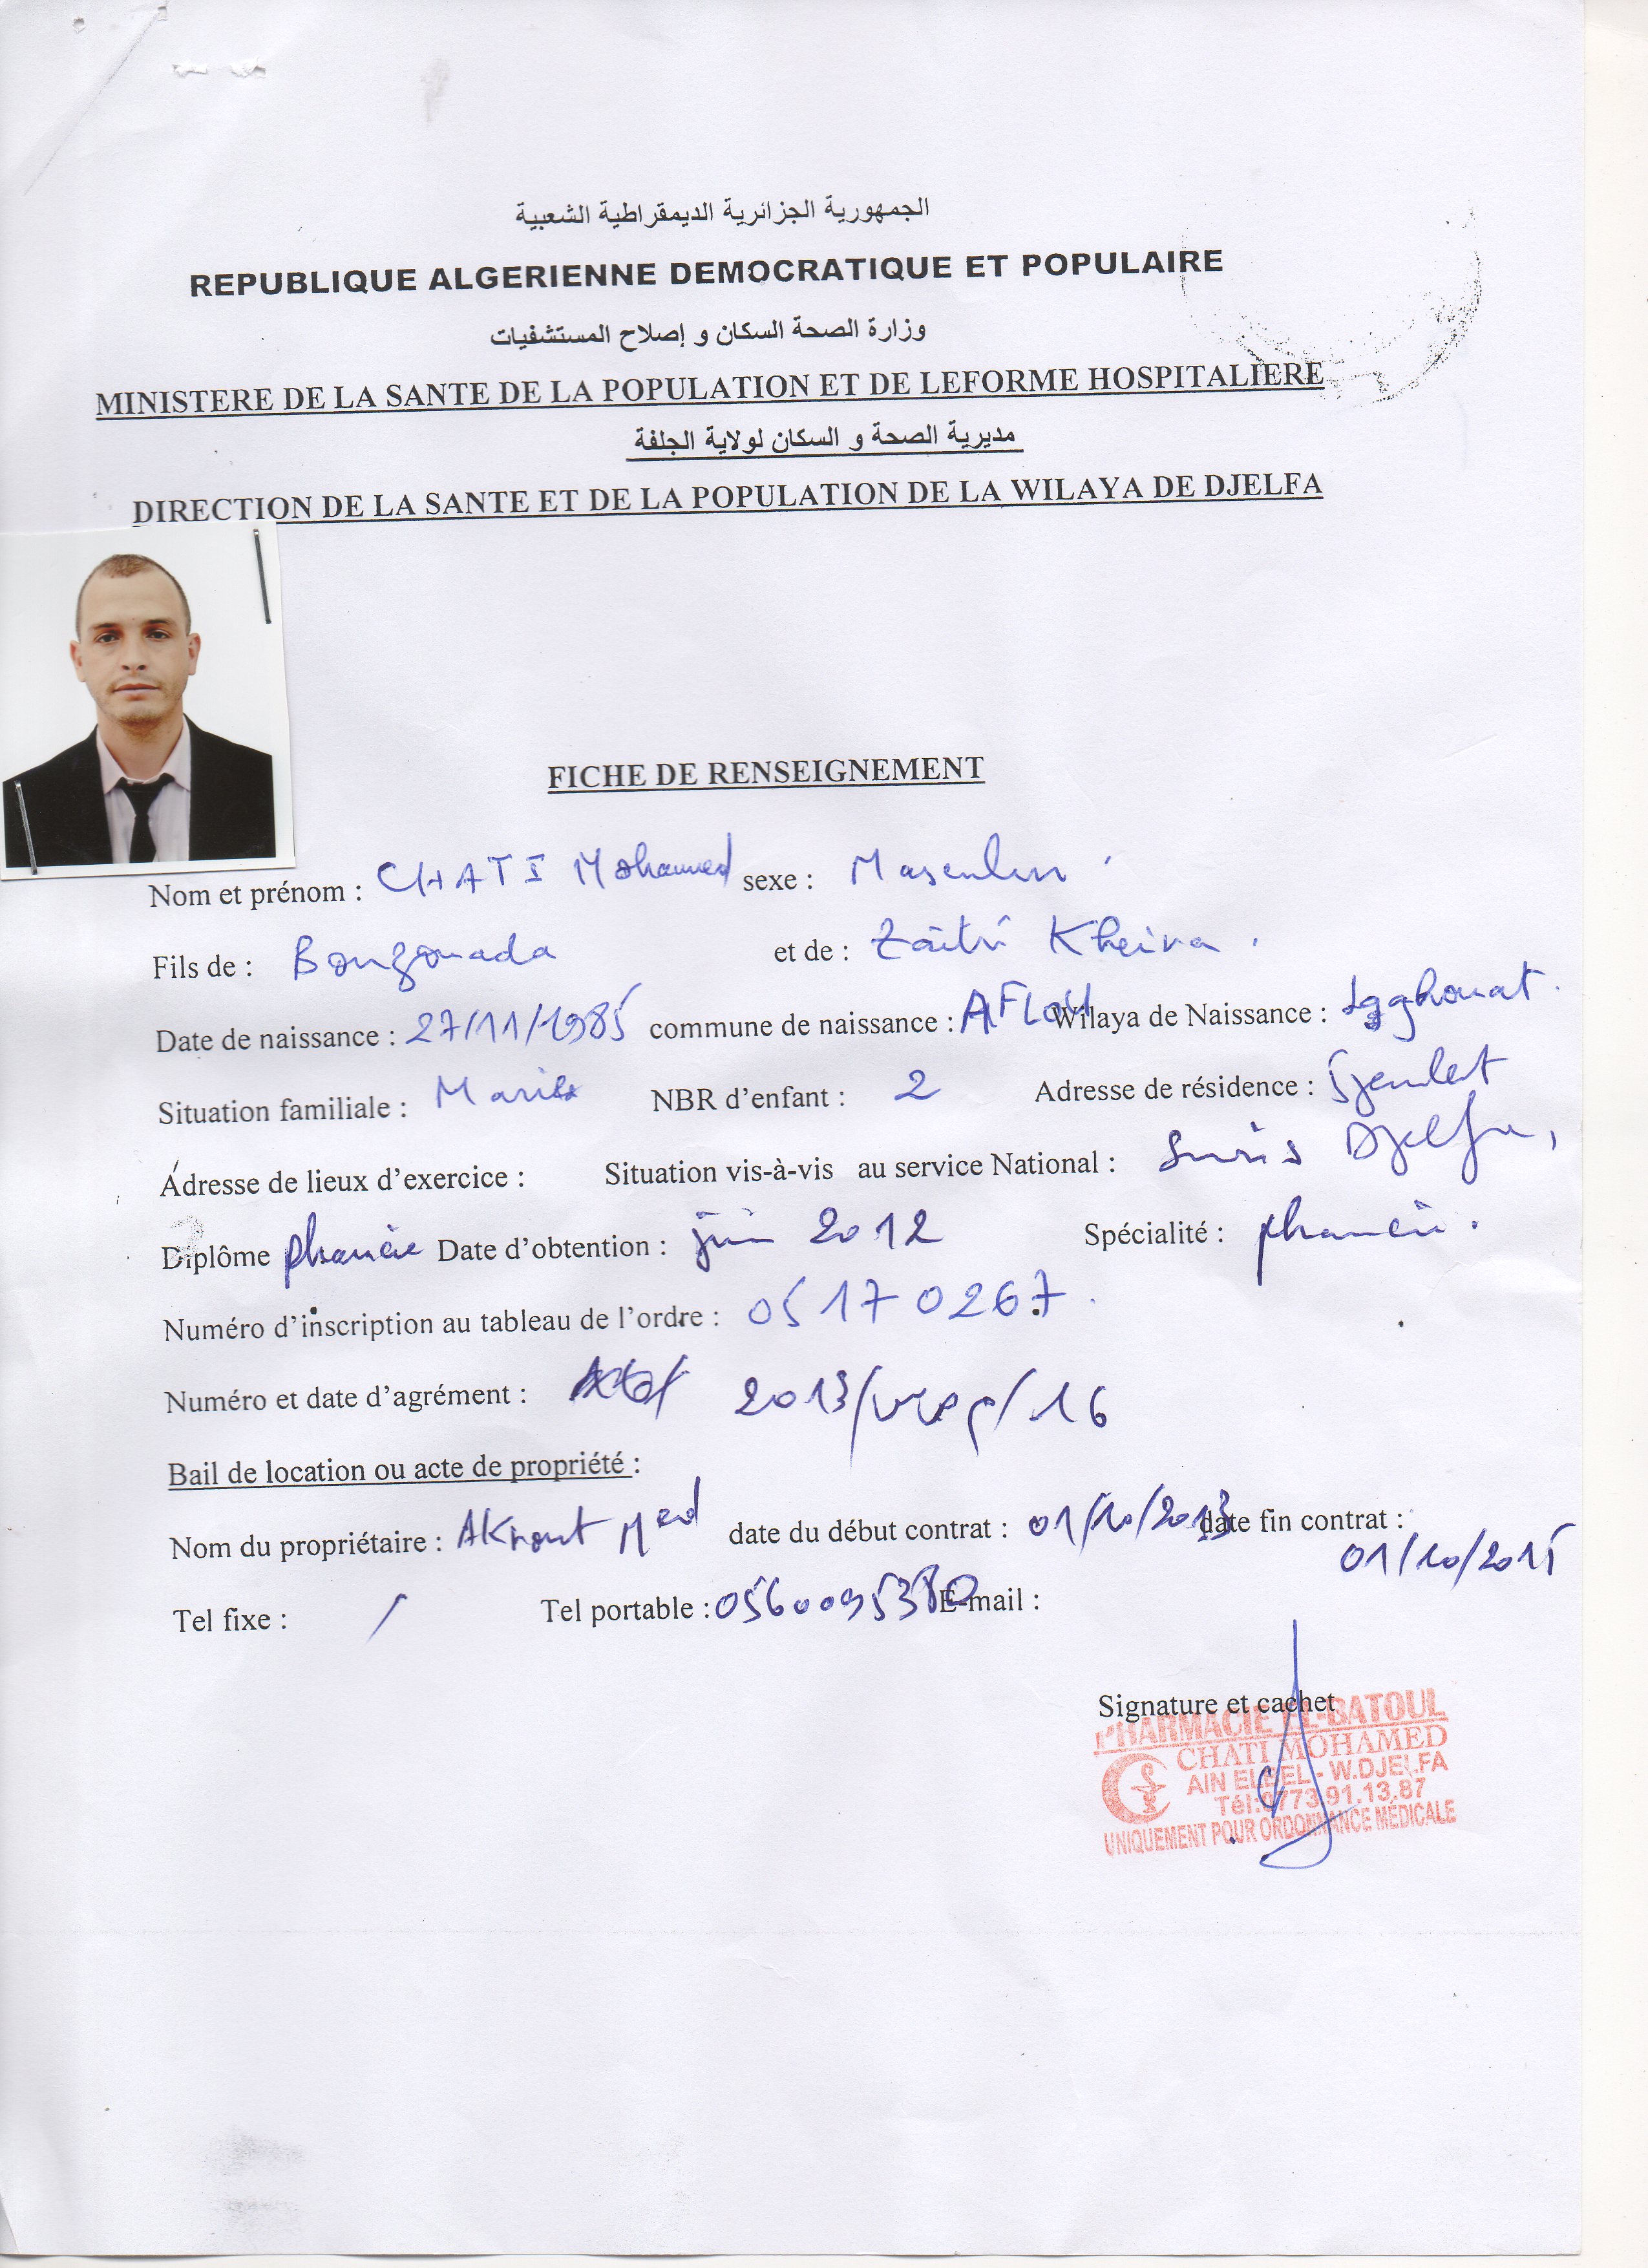 الجمهورية الجزائرية الديمقراطية الشعبية
REPUBLIQUE ALGERIENNE DEMOCRATIQUE ET POPULAIRE
وزارة الصحة السكان و إصلاح المستشفيات
MINISTERE DE LA SANTE DE LA POPULATION ET DE LEFORME HOSPITALIERE
مديرية الصحة و السكان لولاية الجلفة
DIRECTION DE LA SANTE ET DE LA POPULATION DE LA WILAYA DE DJELFA
FICHE DE RENSEIGNEMENT
Nom et prénom : CHATI Mohamed sexe : Masculin
Fils de : et de : Zaitri Kheira .
Date de naissance : 27/11/1985 commune de naissance : AFLOU Wilaya de Naissance : Laghouat .
Situation familiale : NBR d'enfant : 2 Adresse de résidence :
Adresse de lieux d'exercice : Situation vis-à-vis au service National : Sursis Djelfa,
Diplôme Date d'obtention : juin 2012 Spécialité :
Numéro d'inscription au tableau de l'ordre : 05170267 .
Numéro et date d'agrément : 2013/ /16
Bail de location ou acte de propriété :
Nom du propriétaire : Med date du début contrat : 01/10/2013 date fin contrat :
01/10/2015
Tel fixe : / Tel portable : E-mail :
Signature et cachet
PHARMACIE EL-BATOUL
CHATI MOHAMED
AIN ELBEL - W.DJELFA
Tél:0773.91.13.87
UNIQUEMENT POUR ORDONNANCE MÉDICALE